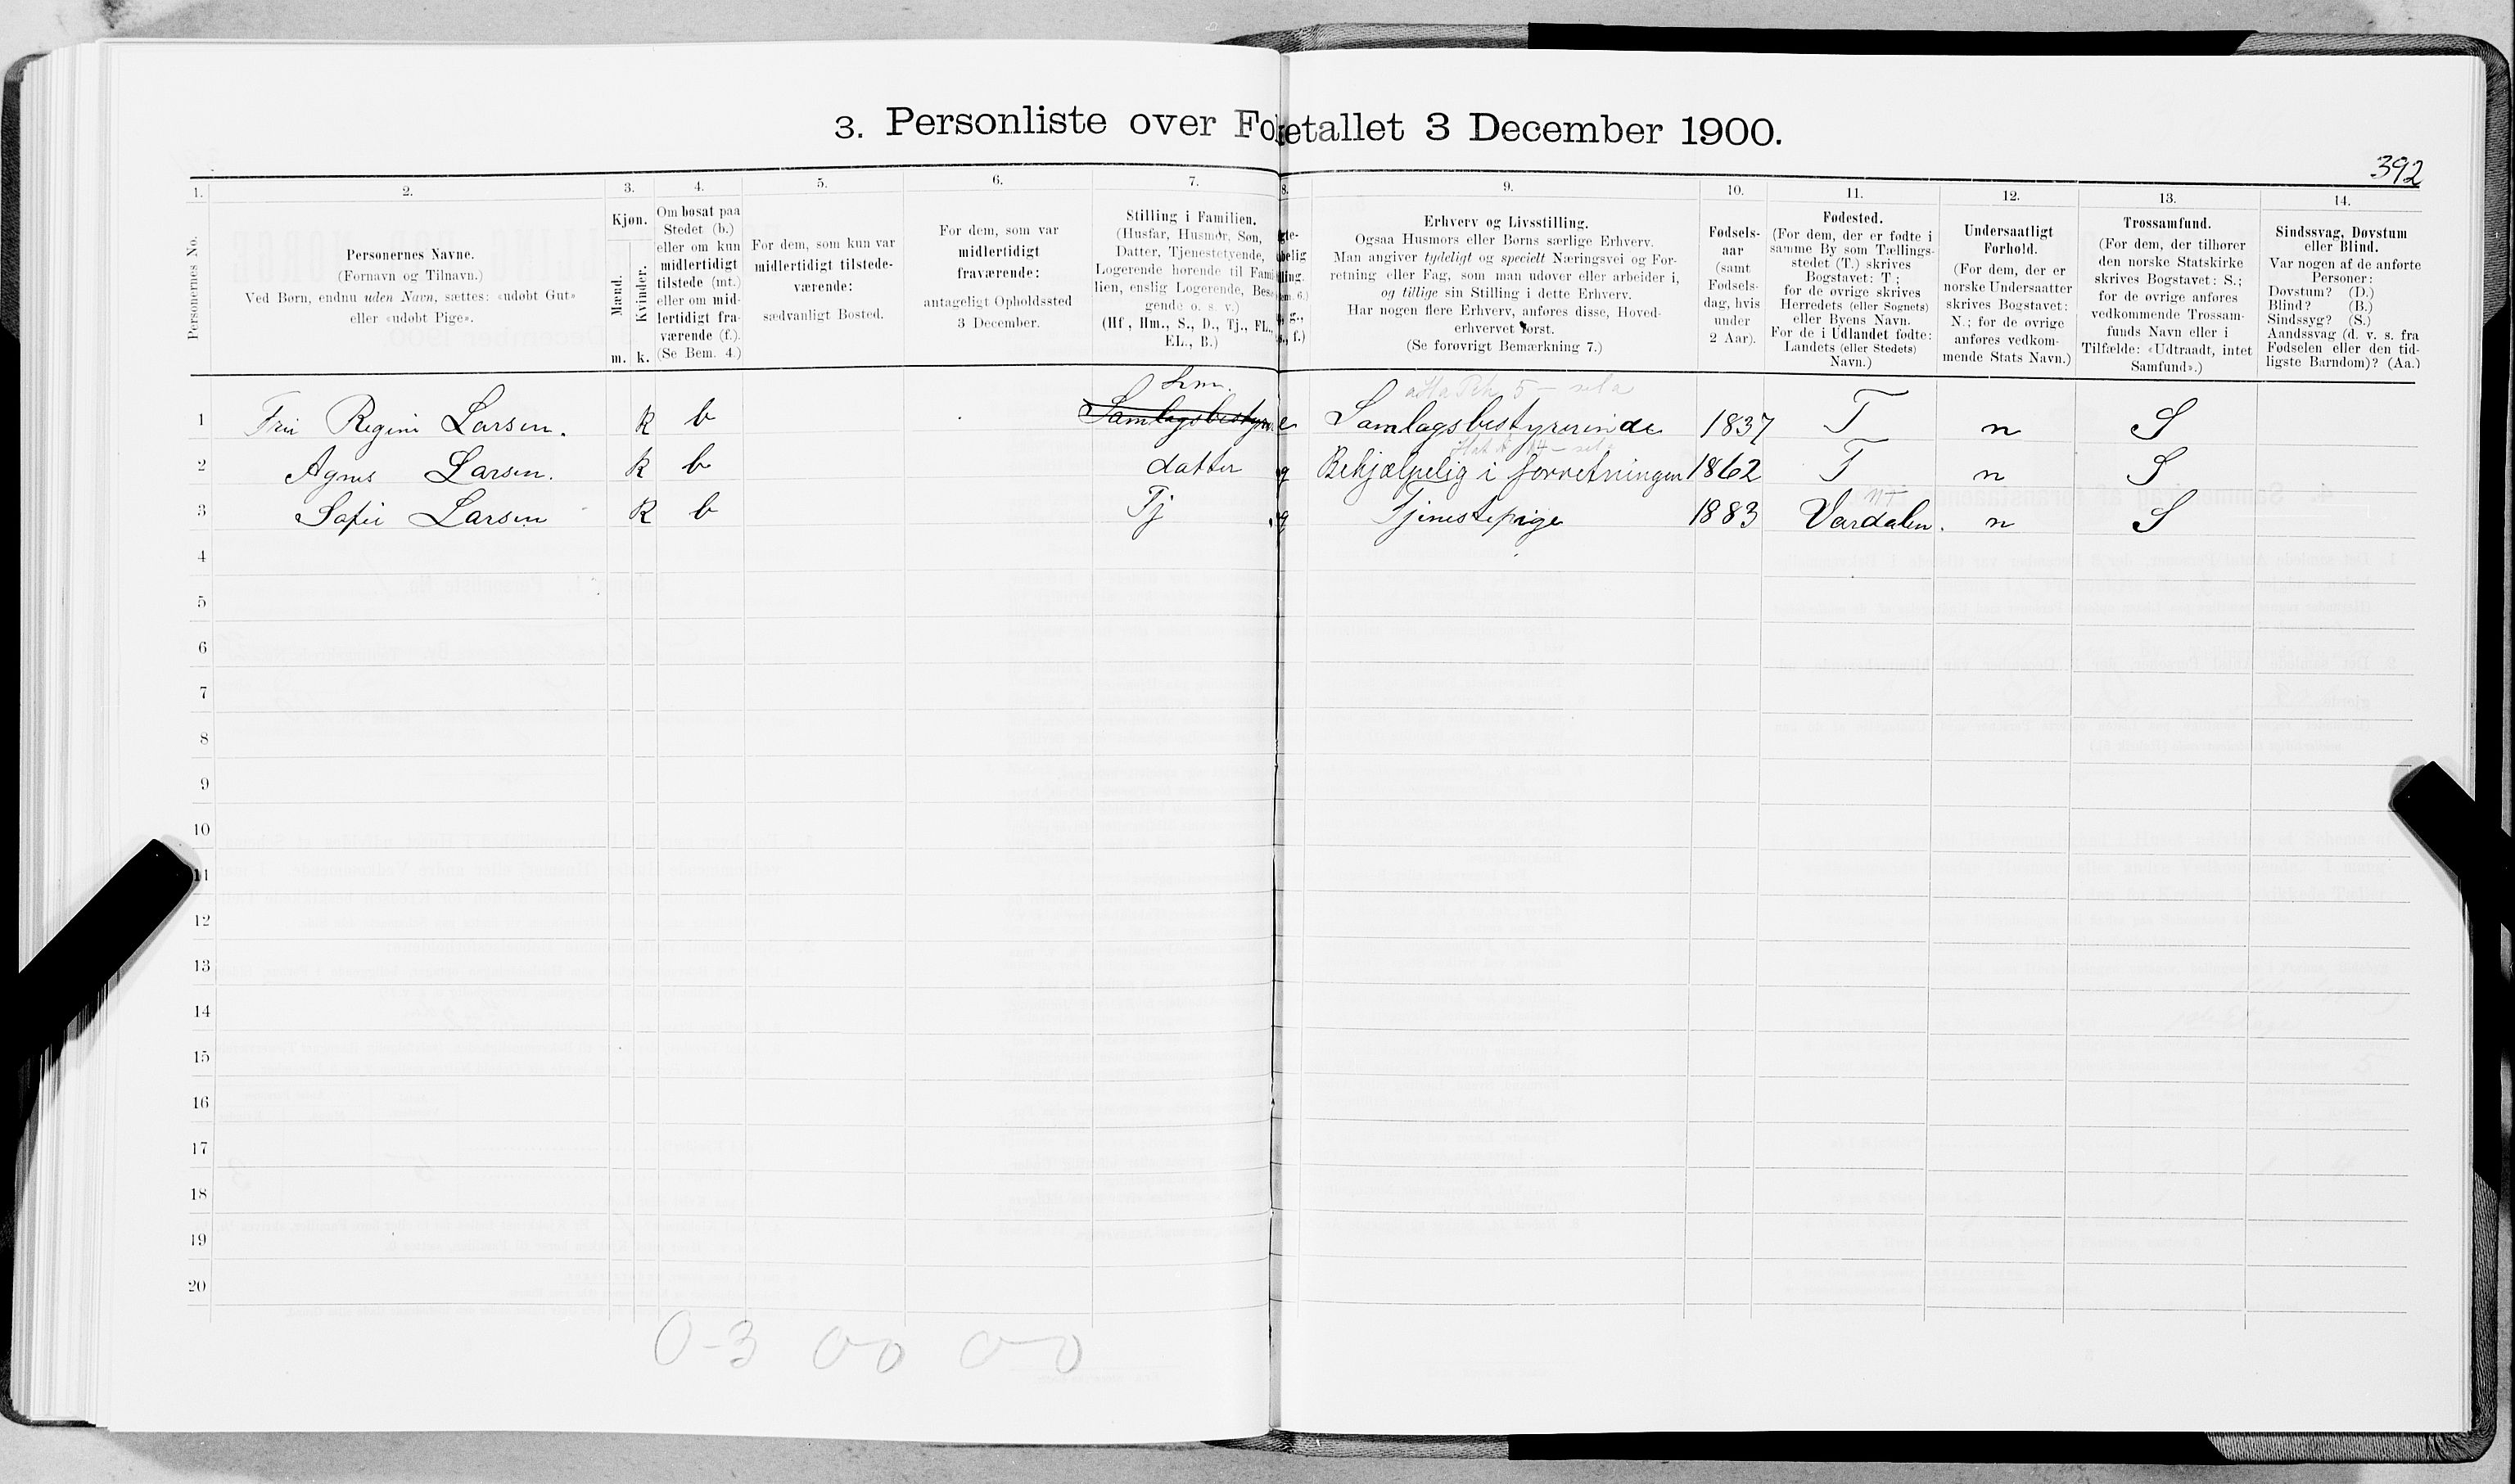 3. Personliste over Folketallet 3 December 1900.
392
1. 2. 3. 4. 5. 6. 7. 8. 9. 10. 11. 12. 13. 14.
Personernes No.
Personernes Navne.
(Fornavn og Tilnavn.)
Ved Børn, endnu uden Navn, sættes: «udøbt Gut»
eller «udøbt Pige».
Kjøn.
Mænd.
Kvinder.
m. k.
Om bosat paa
Stedet (b.)
eller om kun
midlertidigt
tilstede (mt.)
eller om mid-
lertidigt fra-
værende (f.).
(Se Bem. 4.)
For dem, som kun var
midlertidigt tilstede-
værende:
sædvanligt Bosted.
For dem, som var
midlertidigt
fraværende:
antageligt Opholdssted
3 December.
Stilling i Familien.
(Husfar, Husmor, Søn,
Datter, Tjenestetyende,
Logerende hørende til Fami-
lien, enslig Logerende, Besø-
gende o. s. v.)
(Hf, Hm., S., D., Tj., FL.,
EL., B.)
gte-
belig
lling.
em. 6.)
g.,
f.)
Erhverv og Livsstilling.
Ogsaa Husmors eller Børns særlige Erhverv.
Man angiver tydeligt og specielt Næringsvei og For-
retning eller Fag, som man udøver eller arbeider i,
og tillige sin Stilling i dette Erhverv.
Har nogen flere Erhverv, anføres disse, Hoved-
erhvervet først.
(Se forøvrigt Bemærkning 7.)
Fødsels-
aar
(samt
Fødsels-
dag, hvis
under
2 Aar).
Fødested.
(For dem, der er fødte i
samme By som Tællings-
stedet (T.) skrives
Bogstavet: T;
for de øvrige skrives
Herredets (eller Sognets)
eller Byens Navn.
For de i Udlandet fødte:
Landets (eller Stedets)
Navn.)
Undersaatligt
Forhold.
(For dem, der er
norske Undersaatter
skrives Bogstavet:
N.; for de øvrige
anføres vedkom-
mende Stats Navn.)
Trossamfund.
(For dem, der tilhører
den norske Statskirke
skrives Bogstavet: S.;
for de øvrige anføres
vedkommende Trossam-
funds Navn eller i
Tilfælde: «Udtraadt, intet
Samfund».)
Sindssvag, Døvstum
eller Blind.
Var nogen af de anførte
Personer:
Døvstum? (D.)
Blind? (B.)
Sindssyg? (S.)
Aandssvag (d. v. s. fra
Fødselen eller den tid-
ligste Barndom)? (Aa.)
hm.
1 Fru Regine Larsen. k b Samlagsbestyre e Samlagsbestyrerinde 1837 T n S
2 Agnes Larsen. k b datter g Behjælpelig i forretningen 1862 T n S
3 Sofie Larsen k b Tj g Tjenestepige 1883 Vardalen. n S
4
5
6
7
8
9
10
11
12
13
14
15
16
17
18
19
20
0-3 00 0-0